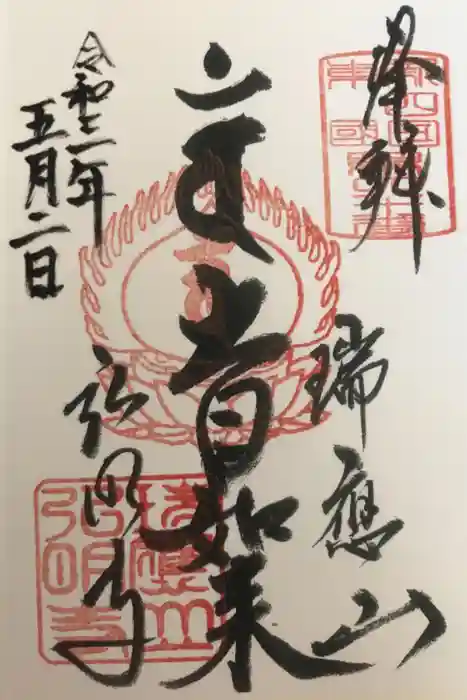 奉拝
瑞應山
大日如来
弘明寺
令和三年
五月二日
瑞應山
弘明寺